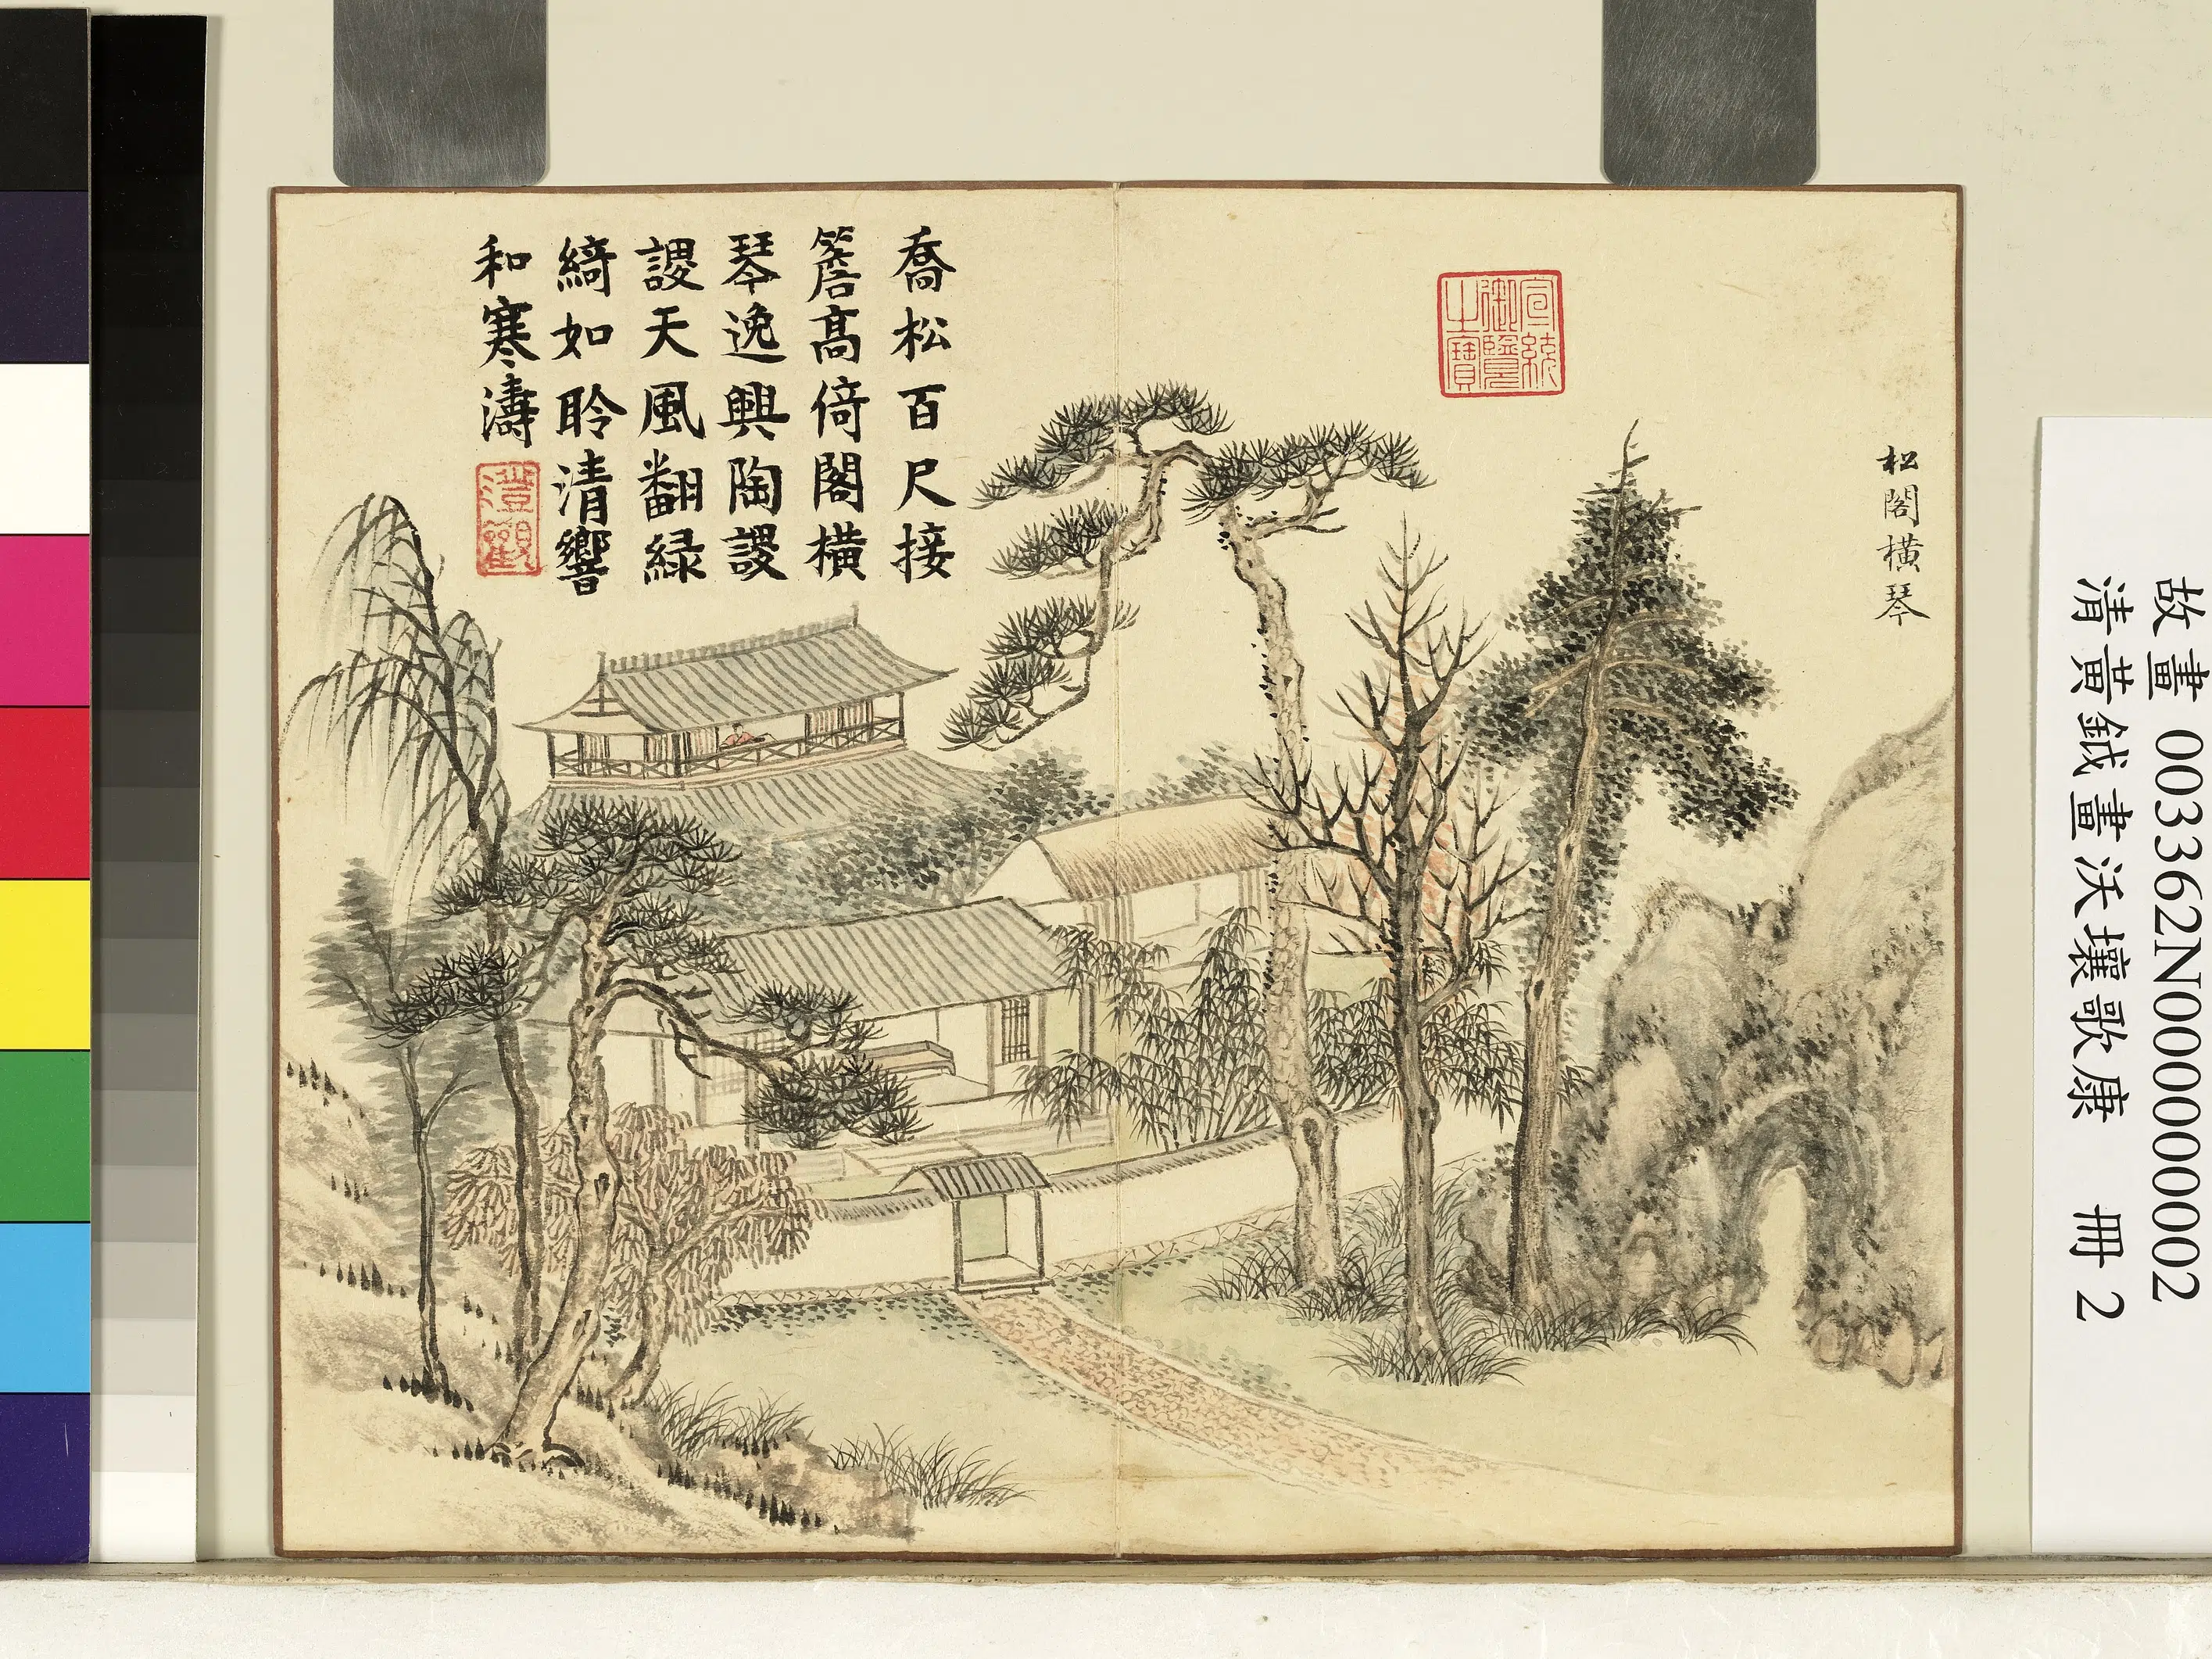 松閣橫琴
宣統
御覽
之寶
喬松百尺接
簷髙倚閣橫
琴逸興陶謖
謖天風翻綠
綺如聆清響
和寒濤
澄觀
故畫 003362N000000002
清黃鉞畫沃壤歌康 冊 2